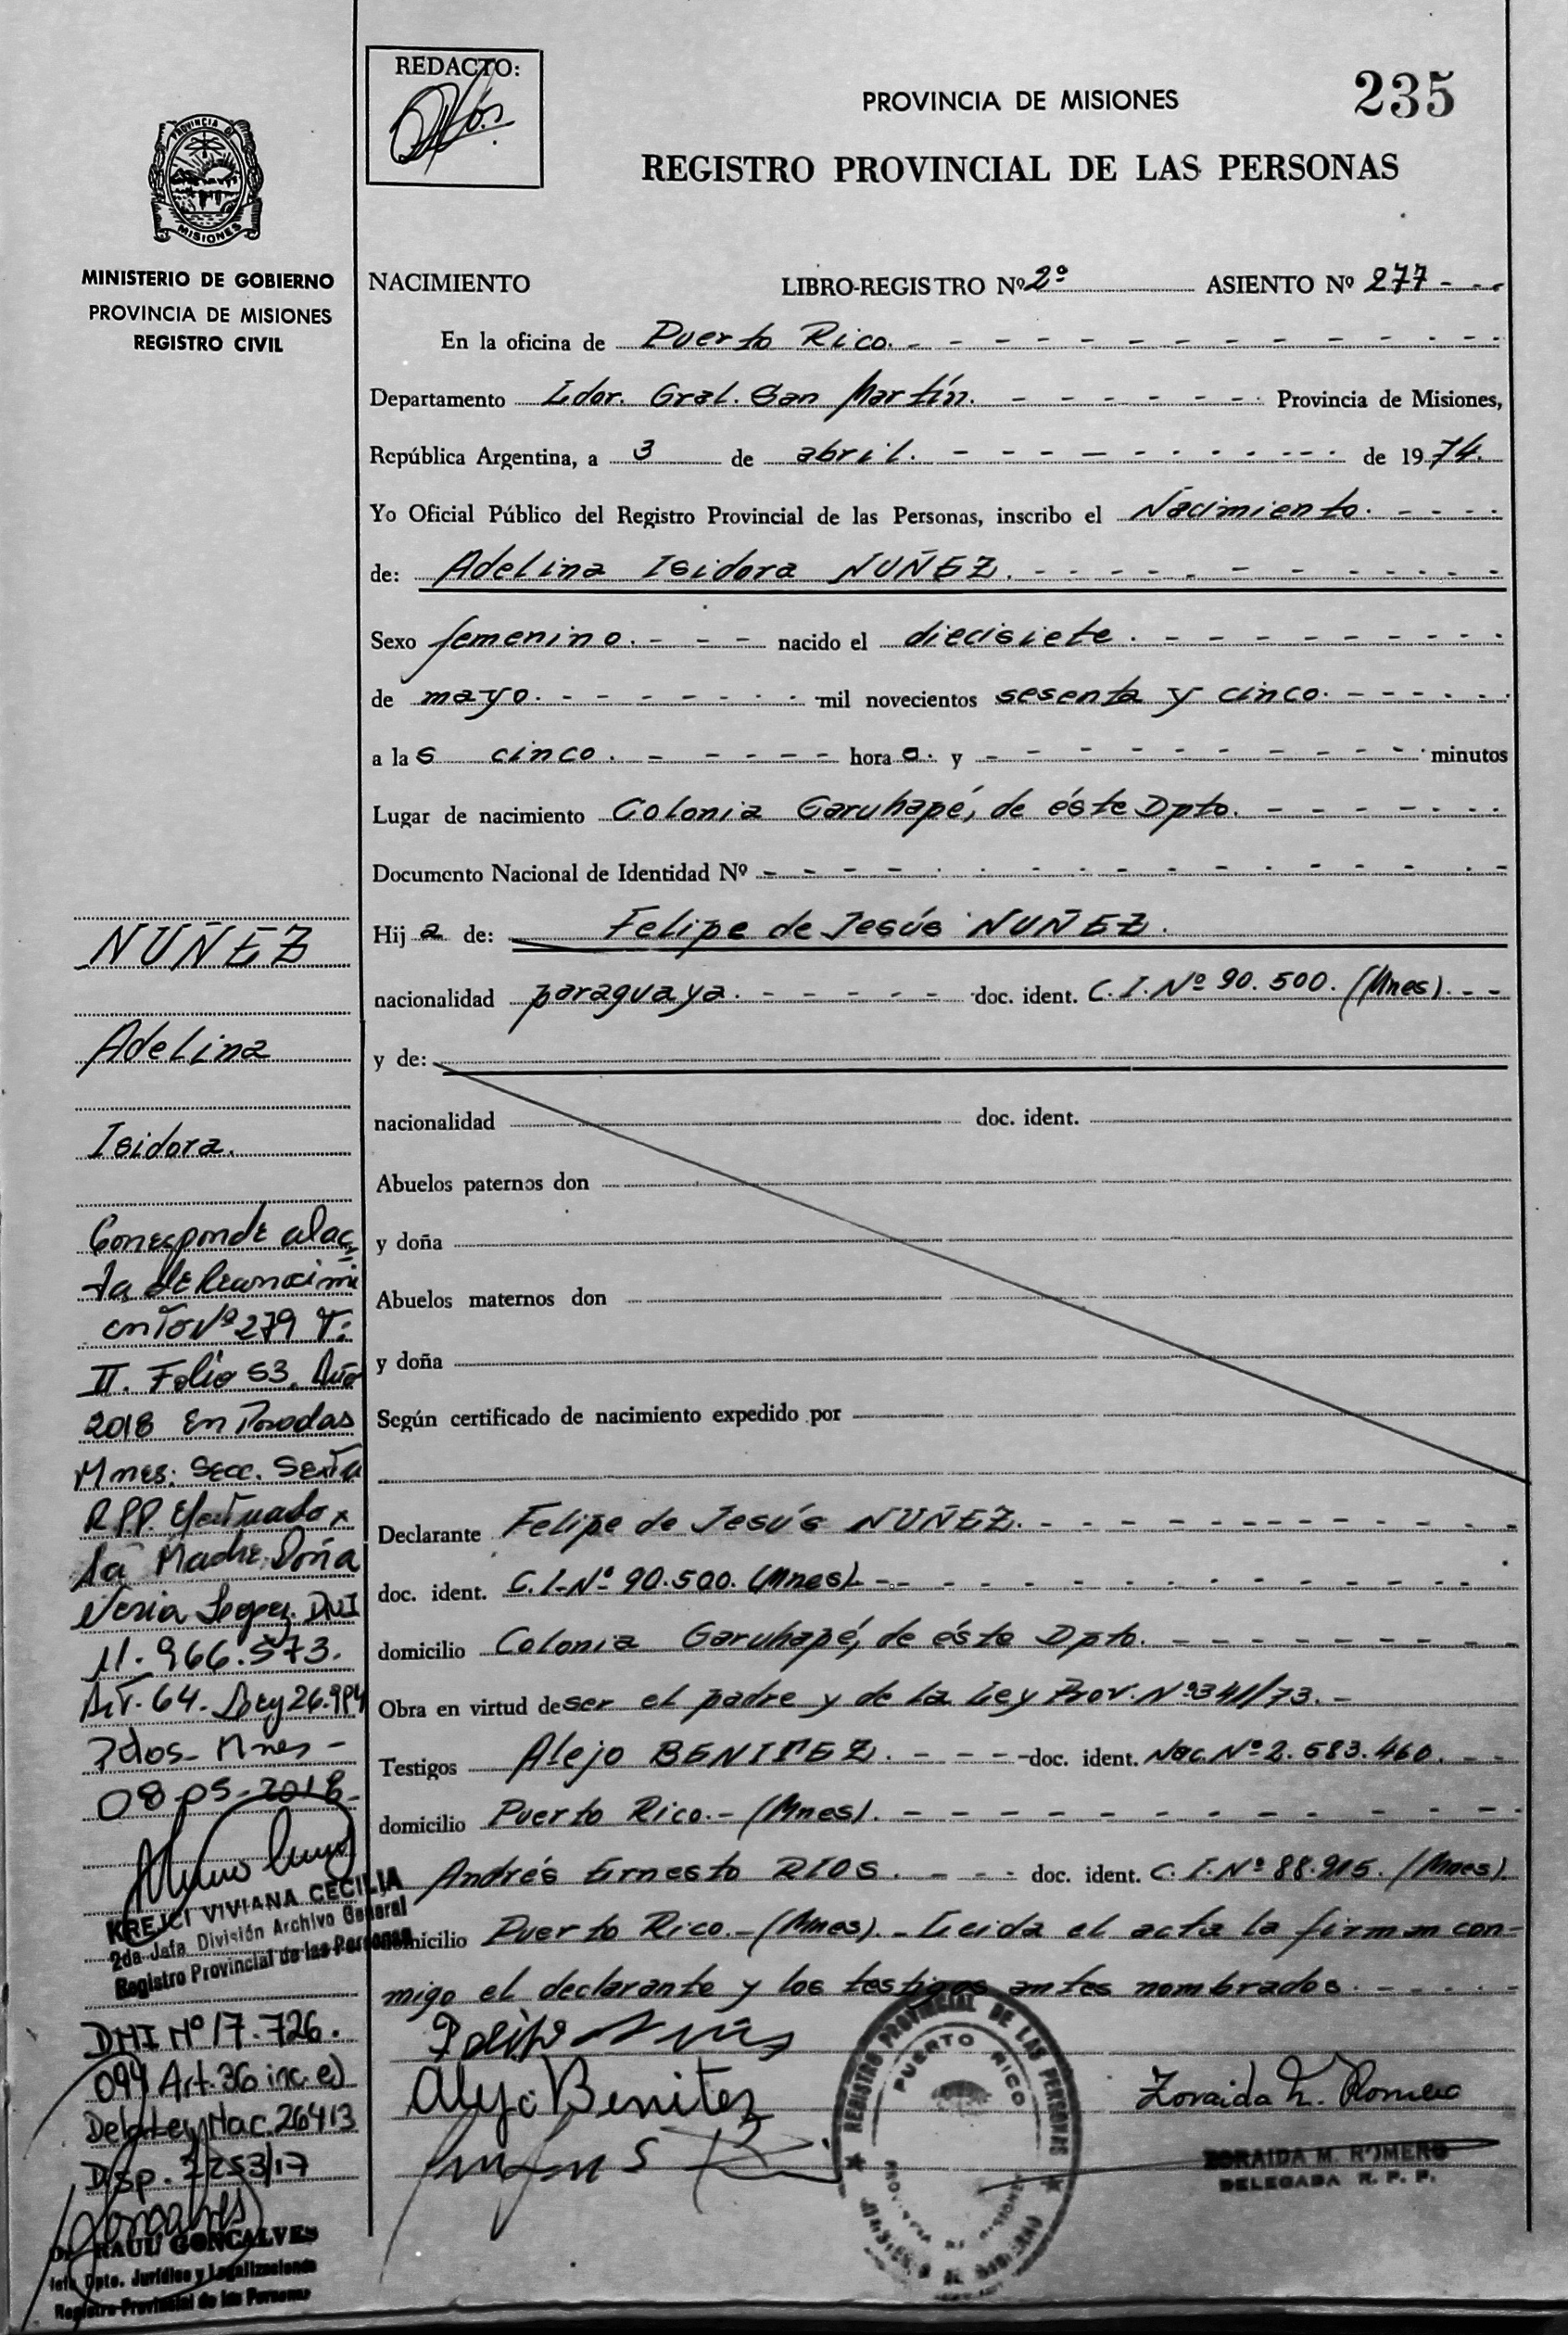 REDACTO:
PROVINCIA DE MISIONES
235
REGISTRO PROVINCIAL DE LAS PERSONAS
PROVINCIA DE
MISIONES
MINISTERIO DE GOBIERNO
PROVINCIA DE MISIONES
REGISTRO CIVIL
NACIMIENTO LIBRO-REGISTRO Nº 2º ASIENTO Nº 277 - - -
En la oficina de Puerto Rico. - - -
Departamento Ldor. Gral. San Martín. - - - Provincia de Misiones,
República Argentina, a 3 de abril. - - - de 1974.
Yo Oficial Público del Registro Provincial de las Personas, inscribo el Nacimiento. - - -
de: Adelina Isidora NUÑEZ. - - -
Sexo femenino. - - - nacido el diecisiete. - - -
de mayo. - - - mil novecientos sesenta y cinco. - - -
a las cinco. - - - hora s. y - - - minutos
Lugar de nacimiento Colonia Garuhapé, de éste Dpto. - - -
Documento Nacional de Identidad Nº - - -
Hij a de: Felipe de Jesús NUÑEZ.
nacionalidad paraguaya. - - - doc. ident. C. I. Nº 90.500. (Mnes). - -
y de:
nacionalidad doc. ident.
Abuelos paternos don
y doña
Abuelos maternos don
y doña
Según certificado de nacimiento expedido por
Declarante Felipe de Jesús NUÑEZ. - - -
doc. ident. C. I. Nº 90.500. (Mnes). - - -
domicilio Colonia Garuhapé, de éste Dpto. - - -
Obra en virtud de ser el padre y de la Ley Prov. Nº 341/73. -
Testigos Alejo BENITEZ. - - - doc. ident. Nac. Nº 2.683.460. - -
domicilio Puerto Rico. - (Mnes). - - -
Andrés Ernesto RIOS. - - - doc. ident. C. I. Nº 88.915. (Mnes).
domicilio Puerto Rico. - (Mnes). - Leida el acta la firman con-
migo el declarante y los testigos antes nombrados. - - -
Alejo Benitez
Zoraida M. Romero
ZORAIDA M. ROMERO
DELEGADA R. P. P.
REGISTRO PROVINCIAL DE LAS PERSONAS
PUERTO RICO
NUÑEZ
Adelina
Isidora.
Corresponde al ac
ta de Reconocimi
ento Nº 279 T:
II. Folio 53. Año
2018 En Posadas
Mnes: Secc. Sexta
R.P.P. Efectuado x
la Madre Doña
Lopez. DNI
11.966.573.
Art. 64. Ley 26.994
Pdos - Mnes -
08-05-2018 -
KREJCI VIVIANA CECILIA
2da Jefa División Archivo General
Registro Provincial de las Personas
DNI Nº 17.726.
094 Art. 36 inc. e)
De la Ley Nac. 26413
Disp. 1253/17
Dr. RAUL GONCALVES
Jefe Dpto. Jurídico y Legalizaciones
Registro Provincial de las Personas